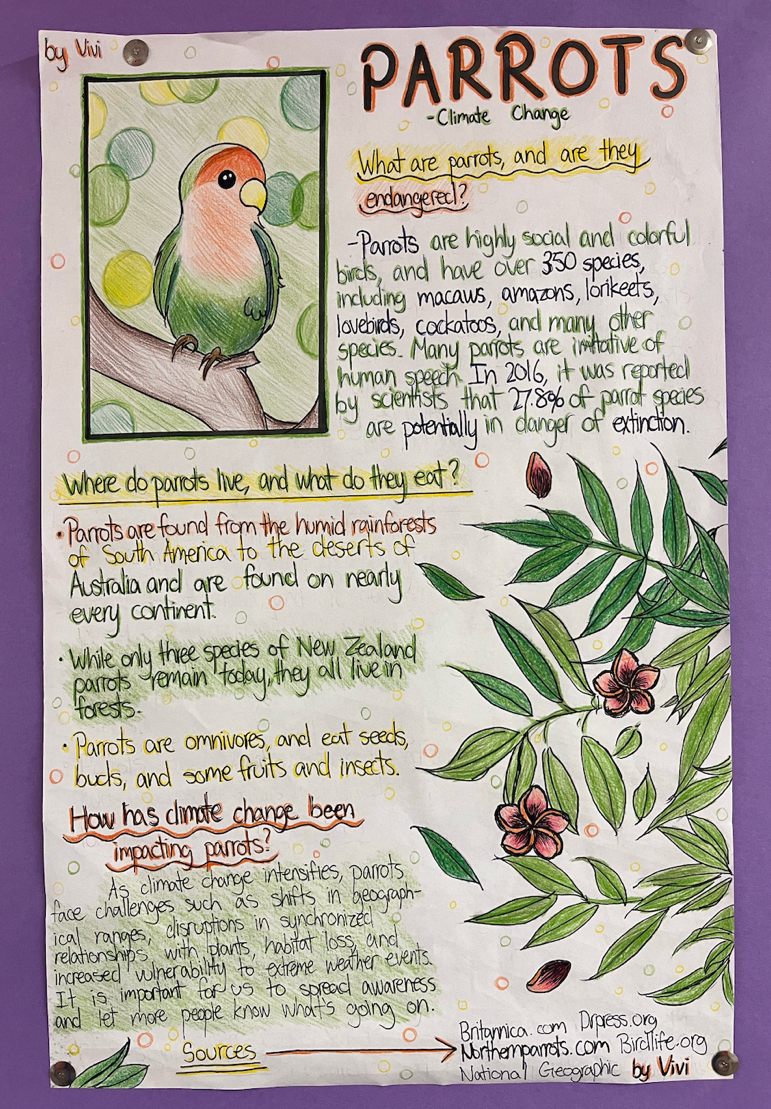 by Vivi
PARROTS
-Climate Change
What are parrots, and are they
endangered?
-Parrots are highly social and colorful
birds, and have over 350 species,
including macaws, amazons, lorikeets,
lovebirds, cockatoos, and many other
species. Many parrots are imitative of
human speech. In 2016, it was reported
by scientists that 27.8% of parrot species
are potentially in danger of extinction.
Where do parrots live, and what do they eat?
• Parrots are found from the humid rainforests
of South America to the deserts of
Australia and are found on nearly
every continent.
• While only three species of New Zealand
parrots remain today, they all live in
forests.
• Parrots are omnivores, and eat seeds,
buds, and some fruits and insects.
How has climate change been
impacting parrots?
As climate change intensifies, parrots
face challenges such as shifts in geograph-
ical ranges, disruptions in synchronized
relationships with plants, habitat loss, and
increased vulnerability to extreme weather events.
It is important for us to spread awareness
and let more people know what's going on.
Sources
Britannica.com Drpress.org
Northernparrots.com Birdlife.org
National Geographic by Vivi